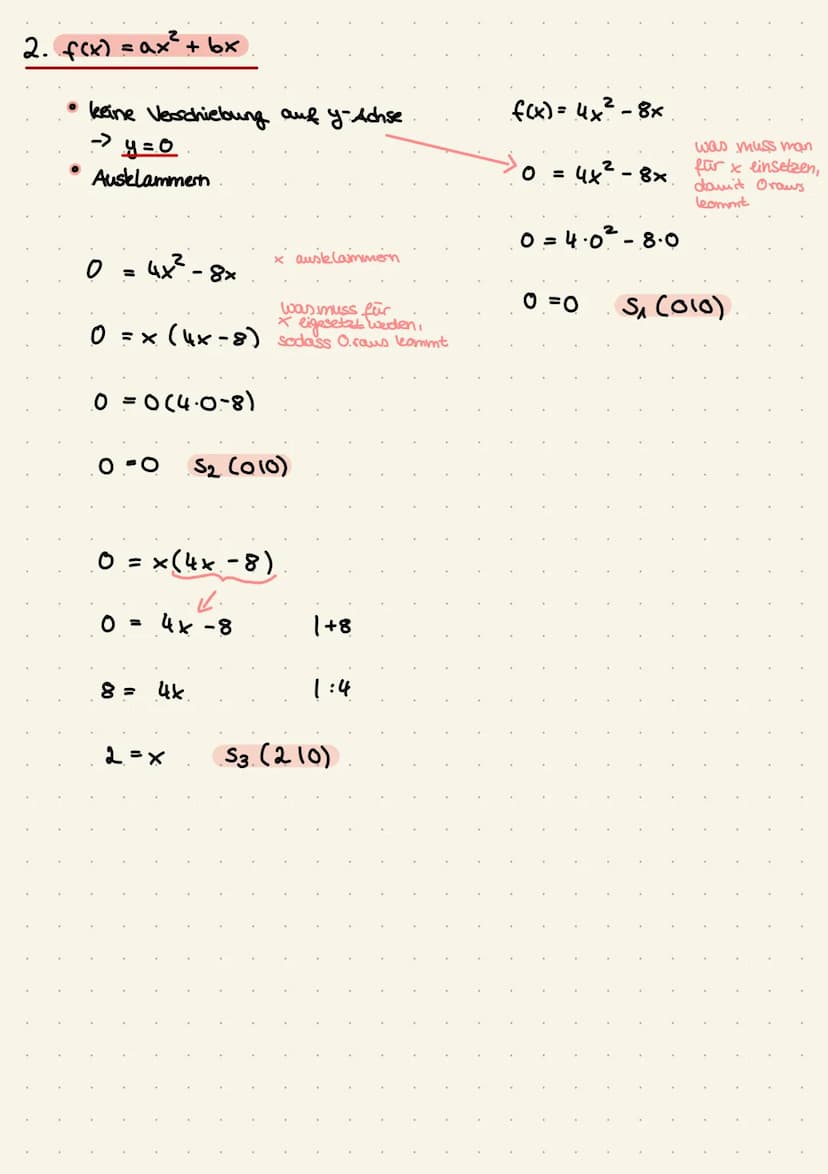 2. f(x) = ax² + bx
• keine Verschiebung auf y-Achse
-> y = 0
• Ausklammern
0 = 4x² - 8x
x ausklammern
0 = x (4x - 8)
was muss für
x eigesetzt weden,
sodass 0 raus kommt
0 = 0 (4·0-8)
0 = 0 S₂ (0|0)
0 = x(4x - 8)
0 = 4x - 8 |+8
8 = 4x |:4
2 = x S₃ (2|0)
f(x) = 4x² - 8x
0 = 4x² - 8x
was muss man
für x einsetzen,
damit 0 raus
kommt
0 = 4·0² - 8·0
0 = 0 S₁ (0|0)